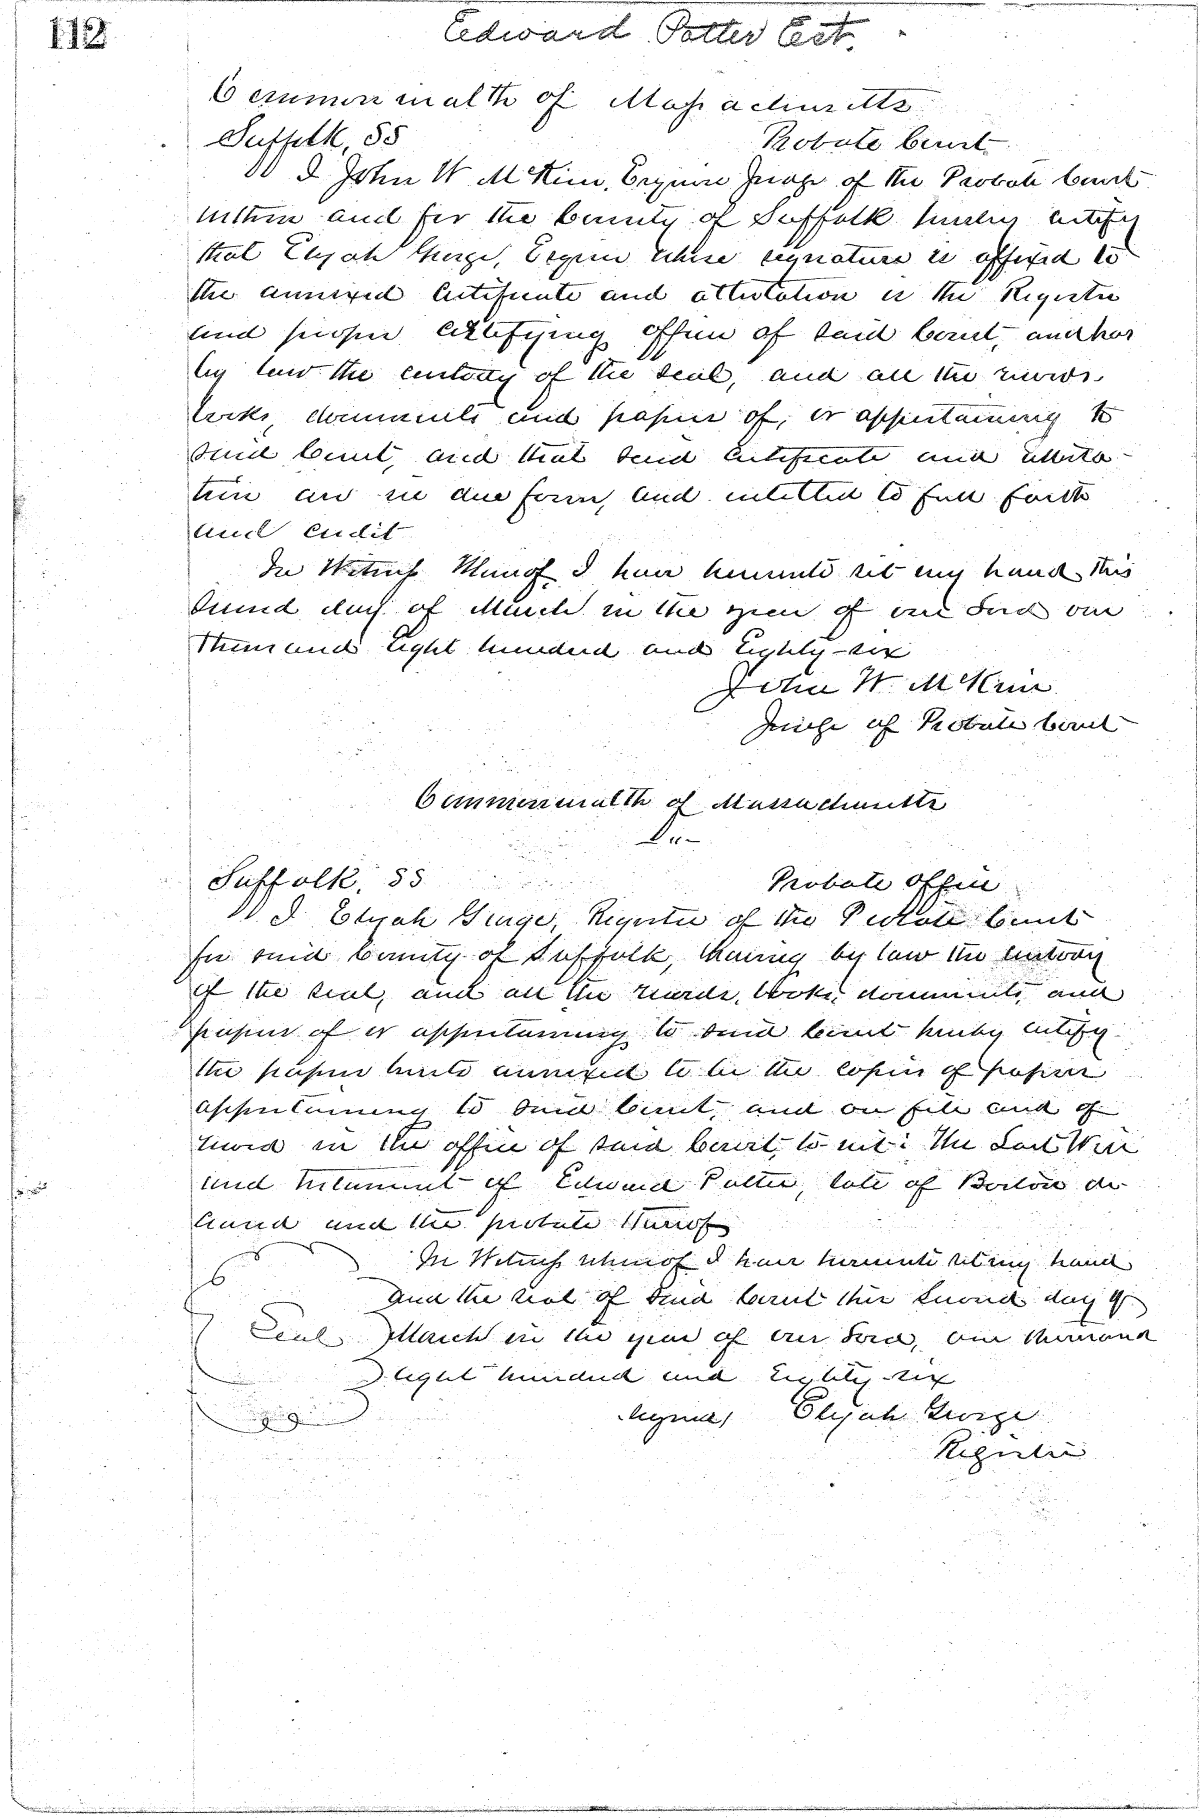 112
Edward Potter Est.
Commonwealth of Massachusetts
Suffolk, SS Probate Court
I John W McKim, Esquire Judge of the Probate Court
within and for the County of Suffolk hereby certify
that Elijah George, Esquire whose signature is affixed to
the annexed Certificate and attestation is the Register
and proper certifying officer of said Court, and has
by law the custody of the seal, and all the records
books, documents and papers of, or appertaining to
said Court, and that said Certificate and attesta-
tion are in due form, and entitled to full faith
and credit
In Witness Whereof I have hereunto set my hand this
second day of March in the year of our Lord one
Thousand Eight hundred and Eighty-six
John W. McKim
Judge of Probate Court
Commonwealth of Massachusetts
Suffolk, SS Probate Office
I Elijah George, Register of the Probate Court
for said County of Suffolk, having by law the custody
of the seal, and all the records, books, documents, and
papers of or appertaining to said Court hereby certify
the papers hereto annexed to be the copies of papers
appertaining to said Court, and on file and of
record in the office of said Court, to wit: The Last Will
and Testament of Edward Potter, late of Boston de-
ceased and the probate thereof
In Witness whereof I have hereunto set my hand
and the seal of said Court this second day of
Seal March in the year of our Lord, one thousand
eight hundred and Eighty-six
Signed, Elijah George
Register